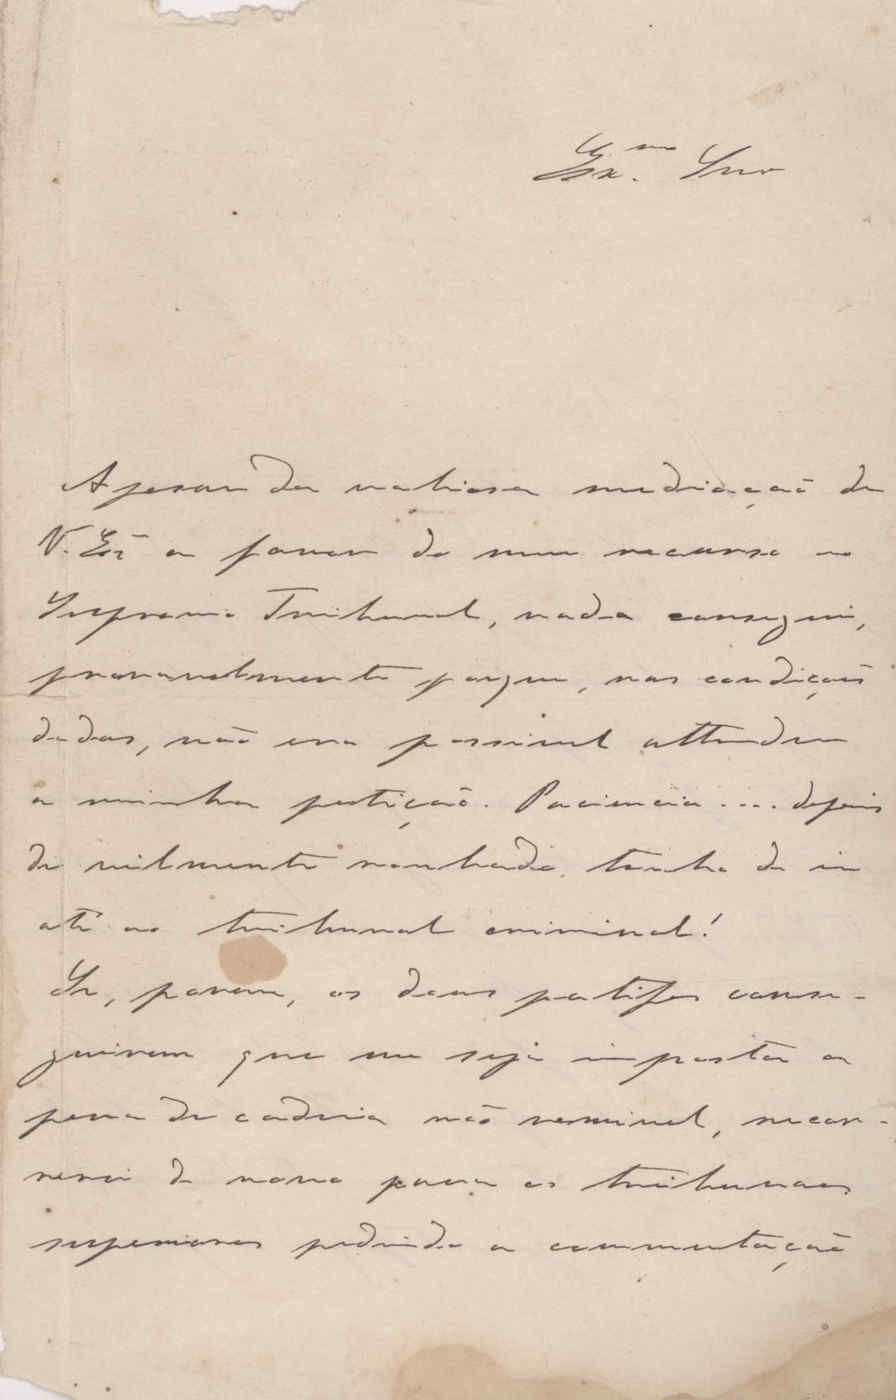 Ex.mo Snr
Apesar da valiosa mediação de
V. Exª a favor do meu recurso no
Supremo Tribunal, nada consegui,
provavelmente porque, nas condições
dadas, não era possivel attender
a minha petição. Paciencia.... depois
de vilmente roubado, tenho de ir
até ao tribunal criminal!
Se, porem, os dous patifes conse-
guirem que me seja imposta a
pena de cadeia não remivel, recor-
rerei de novo para os tribunaes
superiores pedindo a commutação